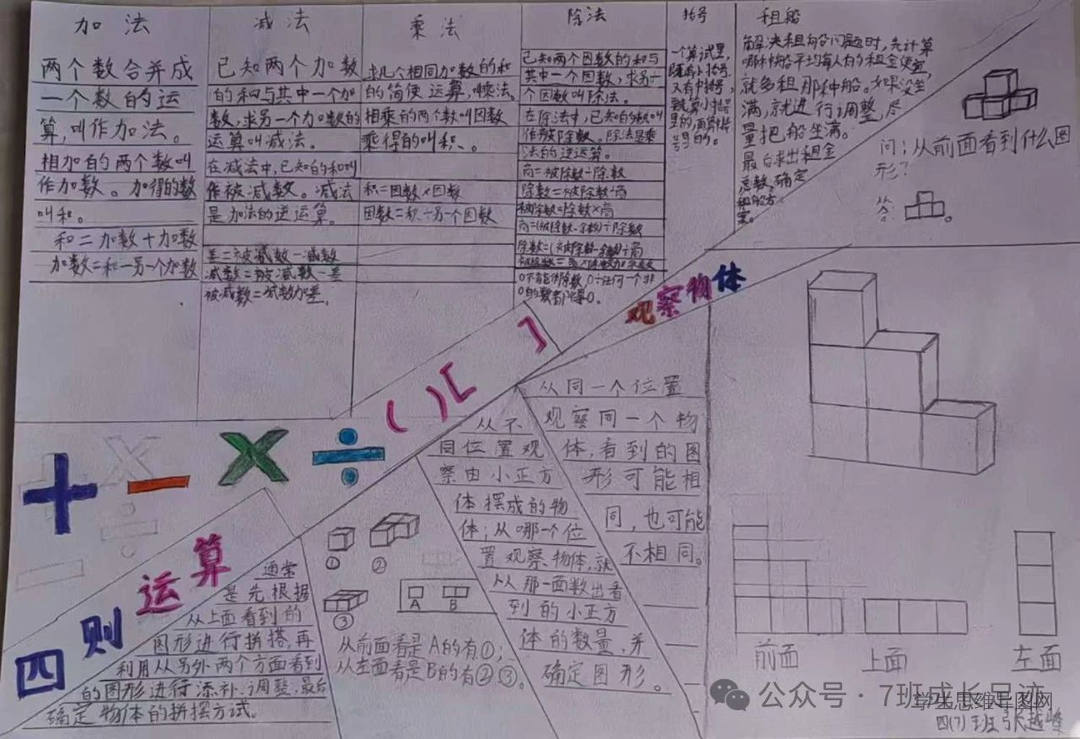 加法
两个数合并成
一个数的运
算,叫作加法。
相加的两个数叫
作加数。加得的数
叫和。
和=加数+加数
加数=和-另一个加数
减法
已知两个加数
的和与其中一个加
数,求另一个加数的
运算叫减法。
在减法中,已知的和叫
作被减数。减法
是加法的逆运算。
差=被减数-减数
减数=被减数-差
被减数=减数+差
乘法
求几个相同加数的和
的简便运算,叫乘法。
相乘的两个数叫因数
乘得的叫积。
积=因数×因数
因数=积÷另一个因数
除法
已知两个因数的积与
其中一个因数,求另一
个因数叫除法。
在除法中,已知的数叫
作被除数。除法是乘
法的逆运算。
商=被除数÷除数
除数=被除数÷商
被除数=除数×商
商=(被除数-余数)÷除数
除数=(被除数-余数)÷商
0不能作除数,0÷任何一个非
0的数都得0。
括号
一个算式里,
既有小括号,
又有中括号,
租船
解决租船问题时,先计算
哪种船平均每人的租金便宜,
就多租那种船。如果没坐
满,就进行调整,尽
量把船坐满。
最后求出租金
总数,确定
问:从前面看到什么图
形?
答:
。
+ - × ÷ ( ) [ ]
观察物体
四则运算
从同一个位置
观察同一个物
体,看到的图
形可能相
同,也可能
不相同。
从不
同位置观
察由小正方
体摆成的物
体;从哪一个位
置观察物体,就
从那一面数出看
到的小正方
体的数量,并
确定图形。
通常
是先根据
从上面看到的
图形进行拼搭,再
利用从另外两个方面看到
的图形进行添补、调整,最后
确定物体的拼摆方式。
① ②
③
A B
从前面看是A的有①;
从左面看是B的有②③。
前面 上面 左面
公众号·7班成长足迹
学生思维导图网
四(7)班 张越峰